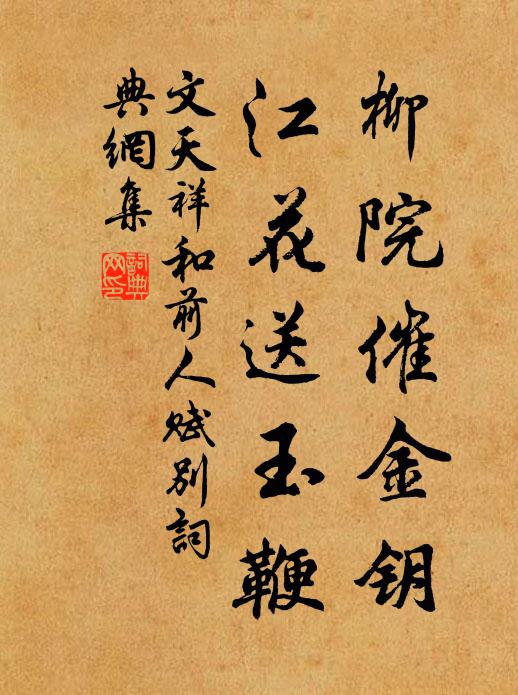 柳院催金钥
江花送玉鞭
文天祥和前人赋别詞
典網集
詞典网印